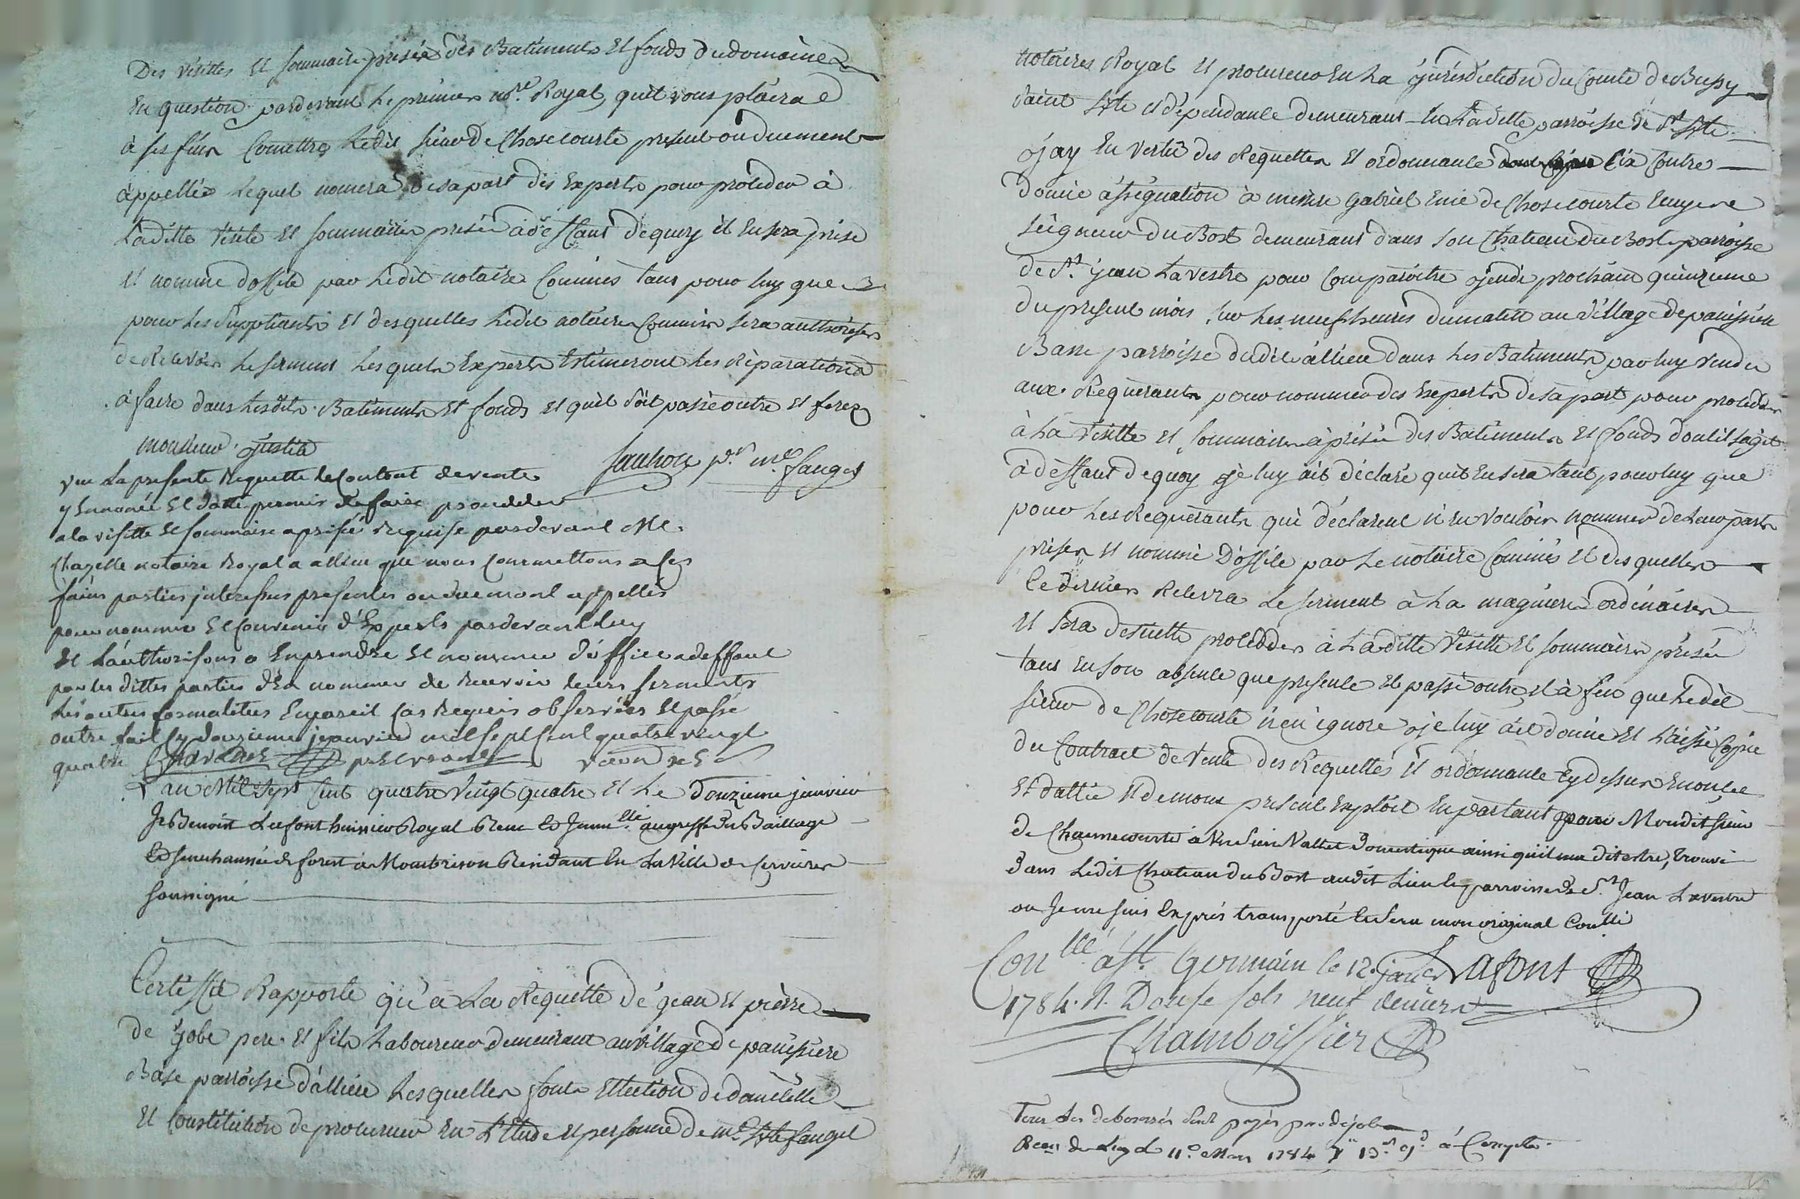 Des visittes Et sommaire prisée des Batiments Et fonds du domaine
En question pardevant Le premier no.re Royal quil vous plaira
à ses fins Comettre Ledit sieur De Chosecourte present ou duement
appellée Lequel nomera desapart des Experts pour proceder à
Laditte visite Et sommaire prisée à deffaut dequoy il En sera prise
Et nommé doffice par Ledit notaire Commis tant pour luy que
pour Les suppliants Et desquelles Ledit notaire Commis sera authorisés
de Recevoir Le serment Lesquels Experts Estimeront Les Reparations
à faire dans Lesdits Batiments Et fonds Et quil soit passé outre Et ferez
monsieur justice
vu La presente Requette Le Contrat de vente
y Ennoncé Et datté permis de faire procedder
a la visitte Et sommaire aprisée Requise pardevant Me.
Chazelle notaire Royal a allieu que nous Commettons a ces
fains parties interessees presentes ou duement appellés
pour nommer Et Convenir d'Experts pardevant luy
Et L'authorisons a En prendre Et nommer d'office adeffaut
par les dittes parties d'En nommer de Recevoir leurs serments
Les autres formalitées En pareil Cas Requis observées Et passé
outre fait Cy douzieme janvier mil sept Cent quatre vingt
quatre
L'an Mil Sept Cent quatre vingt quatre Et Le Douzieme janvier
Je Benoit Lafont huissier Royal au greffe du Baillage
Et senechaussée de forest à Montbrison Residant En La Ville de Cervieres
soussigné
Certiffie Rapporte qu'a La Requette de jean Et pierre
de jobe pere Et fils Laboureur demeurant au village de panissiere
Basse parroisse d'allieu Lesquelles font Ellection de domicille
Et Constitution de procureur En L'Etude Et personne de me. fauget
notaires Royal Et procureur En La jurisdiction du Comté de Bussy
saint Et dependance demeurant En Laditte parroisse de St.
jay En vertu des Requette Et ordonnance Contre
donné assignation à messire Gabriel de Chosecourte Ecuyer
seigneur Du Bost demeurant dans son Chateau Du Bost parroisse
de St. jean Lavestre pour Comparoitre jeudi prochain quinzieme
du present mois sur Les neuf heures du matin au village de panissiere
Basse parroisse dudit allieu dans Les Batiments par luy vendu
aux Requerants pour nommer des Experts de sa part pour proceder
à La visitte Et sommaire aprisée des Batiments Et fonds dont il sagit
à deffaut de quoy je luy ait déclaré quil En sera tant pour luy que
pour Les Requerants qui déclarent n'En vouloir nommer de Leur part
prises Et nommé Doffice par Le notaire Commis Et desquelles
Ce dernier Recevra Le serment à La magniere ordinaire
Et sera de suitte proceder à Laditte visitte Et sommaire prisée
tant En son absence que presence Et passé outre Et à fin que Ledit
sieur de Chosecourte n'en ignore je luy ai donné Et Laissé Copie
du Contract de vente des Requettes Et ordonnance Cy dessus Enoncée
Et dattée Et de mon present Exploit En parlant pour Mondit sieur
de Chosecourte à Un sien Vallet Domestique ainsi qu'il ma dit estre, trouvé
dans Ledit Chateau du Bost audit Lieu Et parroisse de St. Jean Lavestre
ou Je me suis Exprès transporté Et sera mon original Conllé
Con.llé à St. Germain le 12. janv.er Lafont
1784. R. Douse sols neuf deniers
Chamboissier
Tous Les deboursés sont payés par dejobe